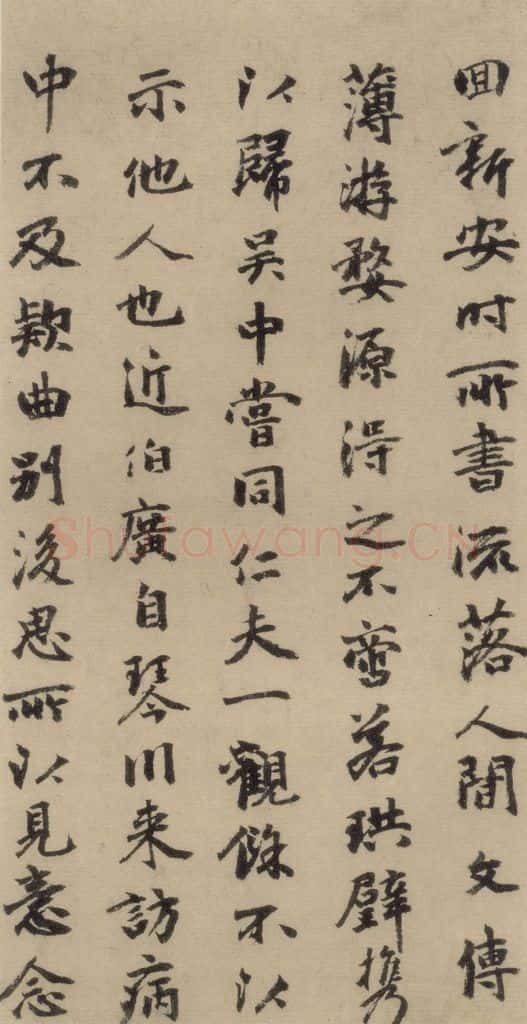 回新安时所書流落人間文傳
薄游婺源淂之不啻若珙璧携
以歸吴中嘗同仁夫一觀餘不以
示他人也近伯廣自琴川来訪病
中不及款曲别後思所以見意念
Shufawang.CN